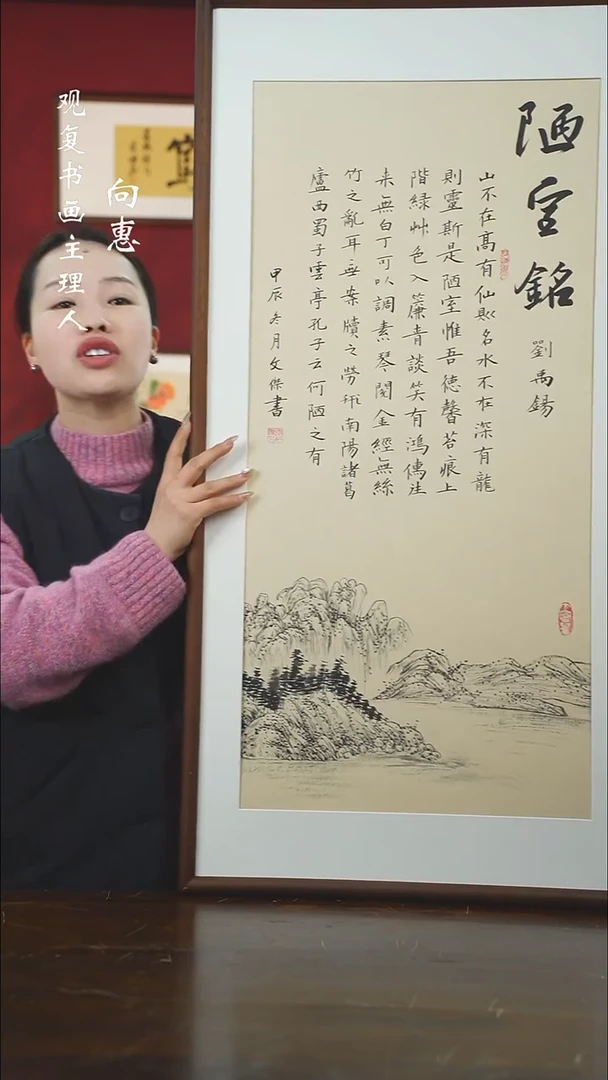 观复书画主理人
向惠
陋室銘
劉禹錫
山不在髙有仙則名水不在深有龍
則靈斯是陋室惟吾德馨苔痕上
階緑艸色入簾青談笑有鴻儒往
来無白丁可以調素琴閱金經無絲
竹之亂耳無案牘之勞形南陽諸葛
廬西蜀子雲亭孔子云何陋之有
甲辰冬月文傑書